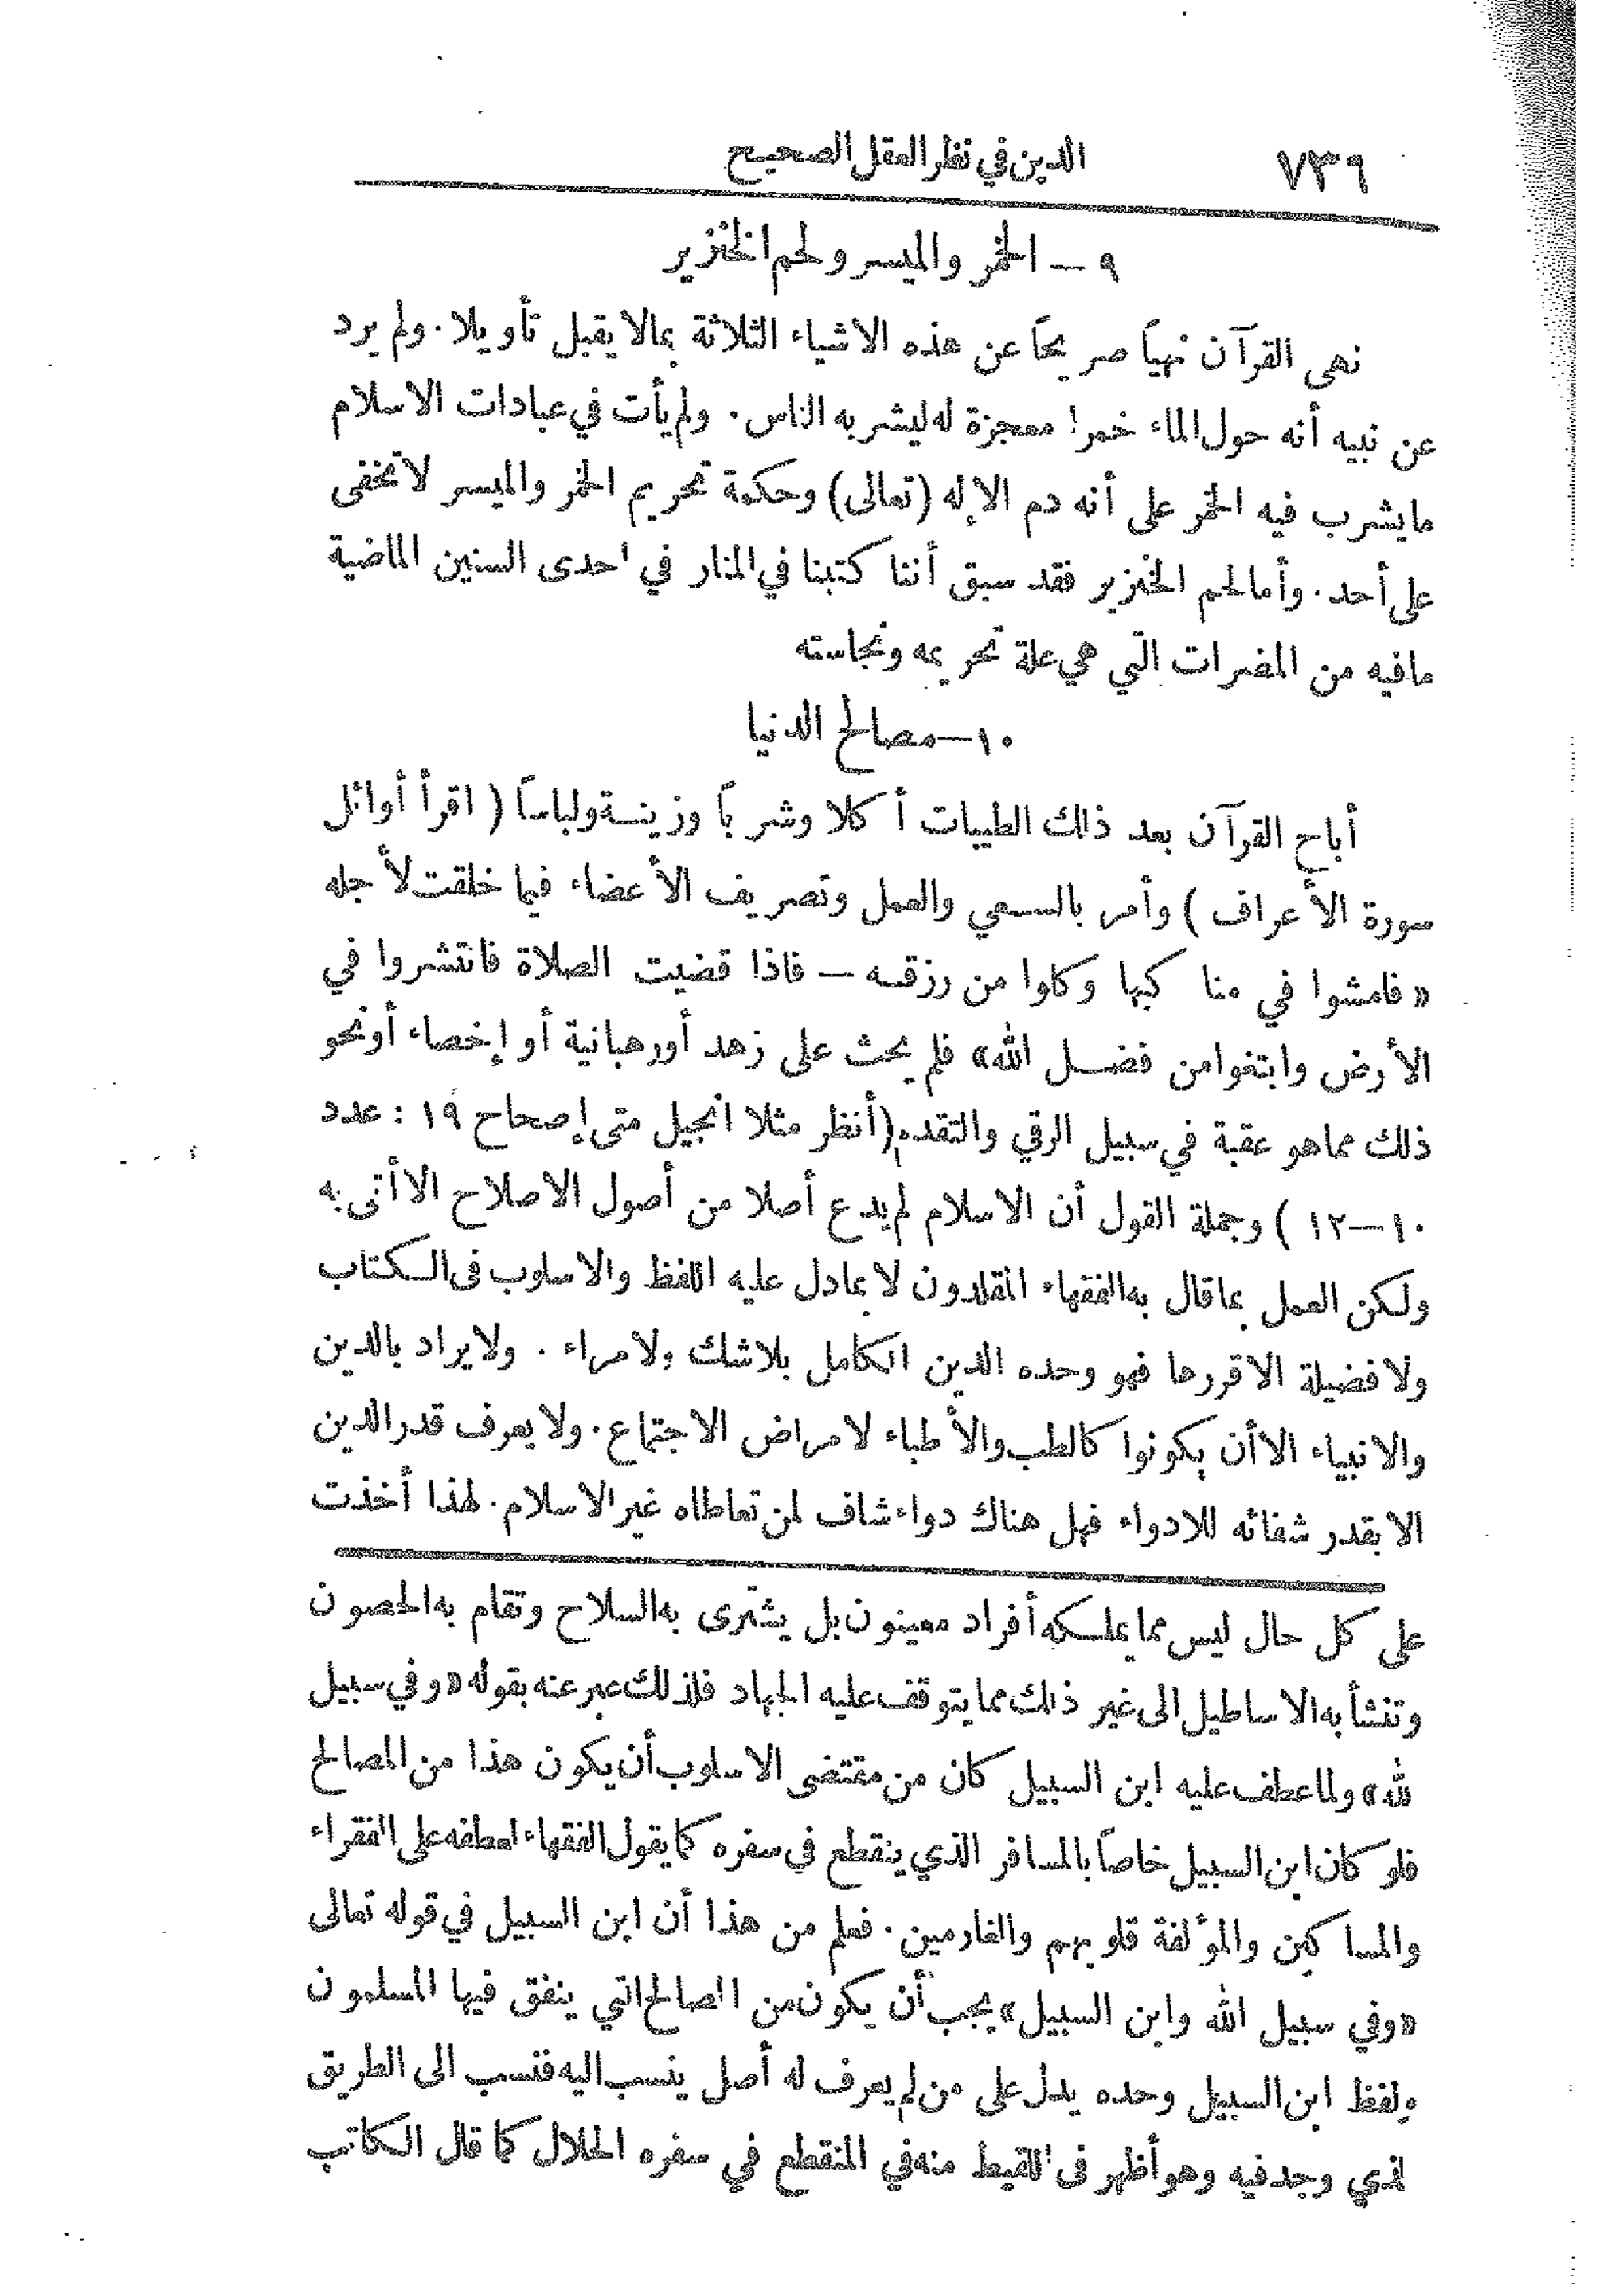 ٧٣٦
الدين في نظر العقل الصحيح
٩ — الخمر والميسر ولحم الخنزير
نهى القرآن نهياً صريحاً عن هذه الاشياء الثلاثة بمالا يقبل تأويلا. ولم يرد
عن نبيه أنه حول الماء خمرا معجزة له ليشربه الناس. ولم يأت في عبادات الاسلام
ما يشرب فيه الخمر على أنه دم الإله (تعالى) وحكمة تحريم الخمر والميسر لا تخفى
على أحد. وأما لحم الخنزير فقد سبق أننا كتبنا في المنار في احدى السنين الماضية
مافيه من المضرات التي هي علة تحريمه ونجاسته
١٠ — مصالح الدنيا
أباح القرآن بعد ذلك الطيبات أكلا وشرباً وزينة ولباساً ( اقرأ أوائل
سورة الأعراف ) وأمر بالسعي والعمل وتصريف الأعضاء فيما خلقت لأجله
« فامشوا في مناكبها وكلوا من رزقه — فاذا قضيت الصلاة فانتشروا في
الأرض وابتغوا من فضل الله» فلم يحث على زهد أو رهبانية أو إخصاء أو نحو
ذلك مما هو عقبة في سبيل الرقي والتقدم (أنظر مثلا انجيل متى إصحاح ١٩ : عدد
١٠—١٢ ) وجملة القول أن الاسلام لم يدع أصلا من أصول الاصلاح الا أتى به
ولكن العمل بما قال به الفقهاء المقلدون لا بما دل عليه اللفظ والاسلوب في الكتاب
ولا فضيلة الا قررها فهو وحده الدين الكامل بلاشك ولا مراء . ولا يراد بالدين
والانبياء الا أن يكونوا كالطب والأطباء لامراض الاجتماع. ولا يعرف قدر الدين
الا بقدر شفائه للادواء فهل هناك دواء شاف لمن تعاطاه غير الاسلام. لهذا أخذت
على كل حال ليس مما يملكه أفراد معينون بل يشترى به السلاح وتقام به الحصون
وتنشأ به الاساطيل الى غير ذلك مما يتوقف عليه الجهاد فلذلك عبر عنه بقوله «وفي سبيل
لله» ولما عطف عليه ابن السبيل كان من مقتضى الاسلوب أن يكون هذا من المصالح
فلو كان ابن السبيل خاصاً بالمسافر الذي ينقطع في سفره كما يقول الفقهاء لعطفه على الفقراء
والمساكين والمؤلفة قلوبهم والغارمين. فعلم من هذا أن ابن السبيل في قوله تعالى
«وفي سبيل الله وابن السبيل» يجب أن يكون من المصالح التي ينفق فيها المسلمون
ولفظ ابن السبيل وحده يدل على من لم يعرف له أصل ينسب اليه فنسب الى الطريق
لذي وجد فيه وهو أظهر في اللقيط منه في المنقطع في سفره الحلال كما قال الكاتب